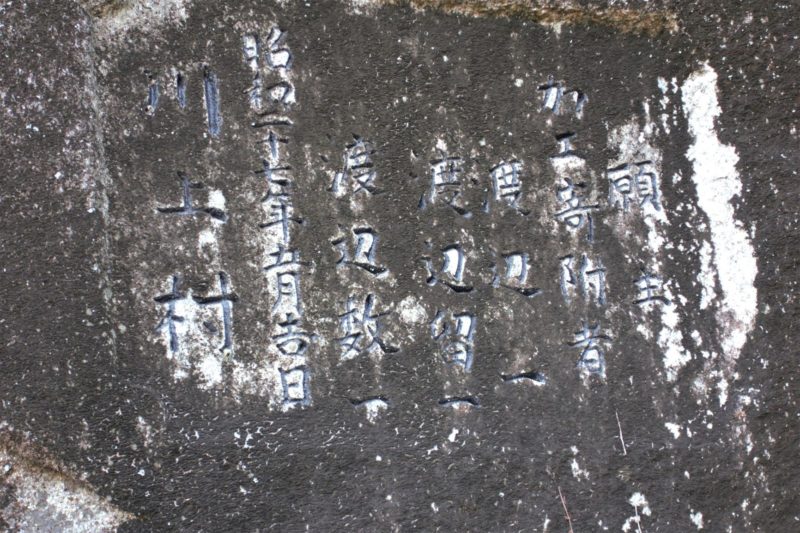 願主
加工寄附者
渡辺一
渡辺留一
渡辺数一
昭和二十七年五月吉日
川上村